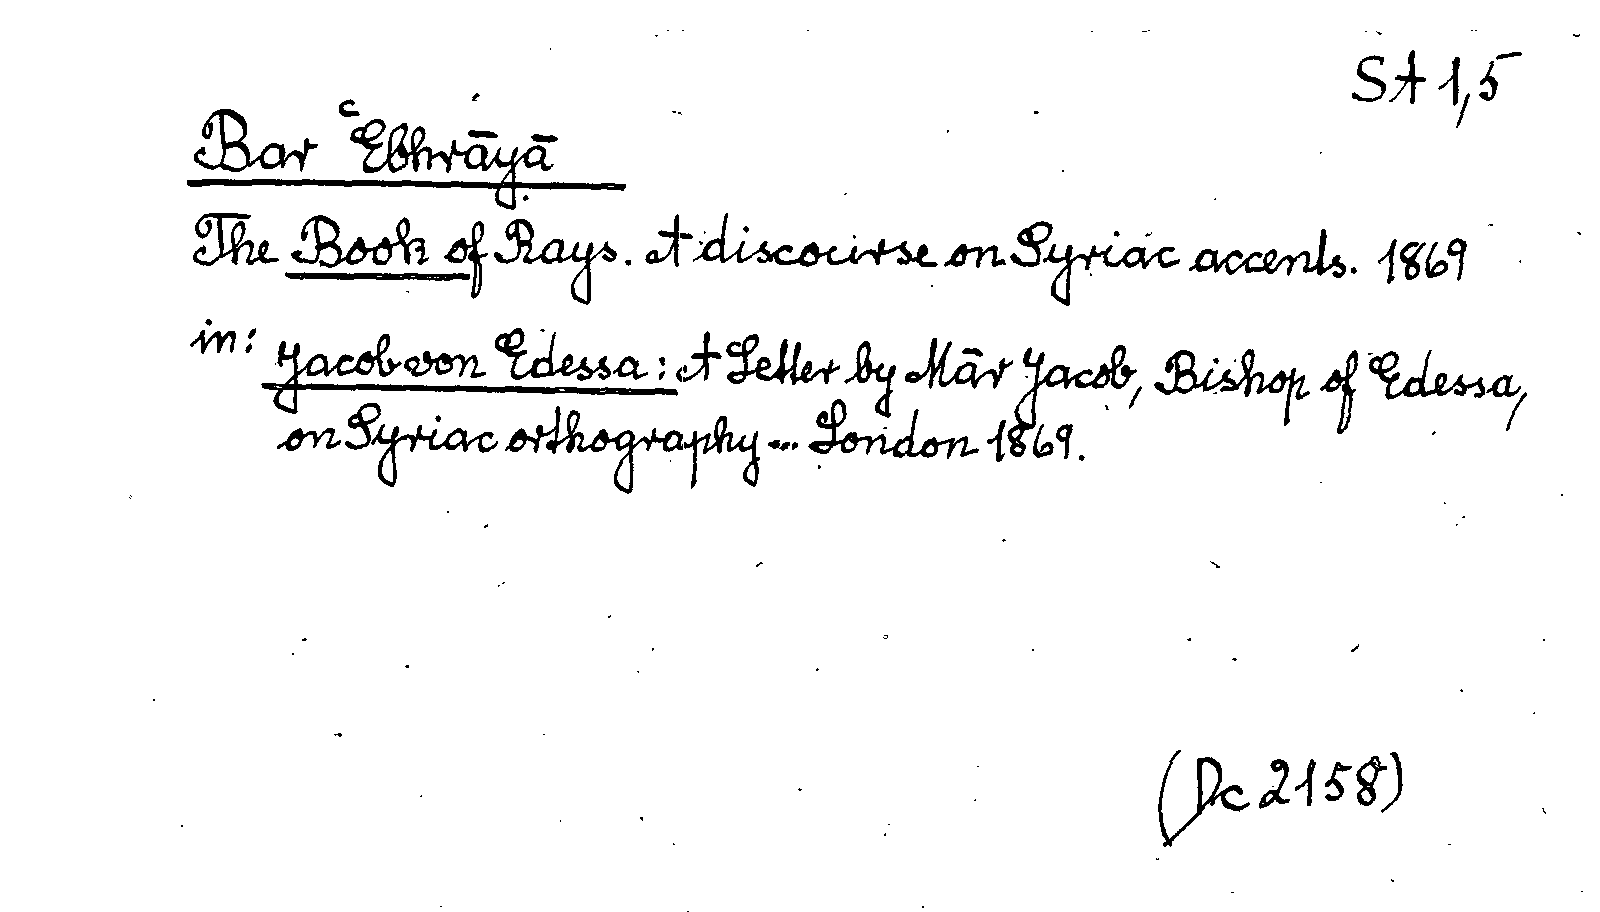 SA 1,5
Bar ʿEbhrāyā
The Book of Rays. A discourse on Syriac accents. 1869
in: Jacob von Edessa: A Letter by Mār Jacob, Bishop of Edessa,
on Syriac orthography... London 1869.
(Dc 2158)